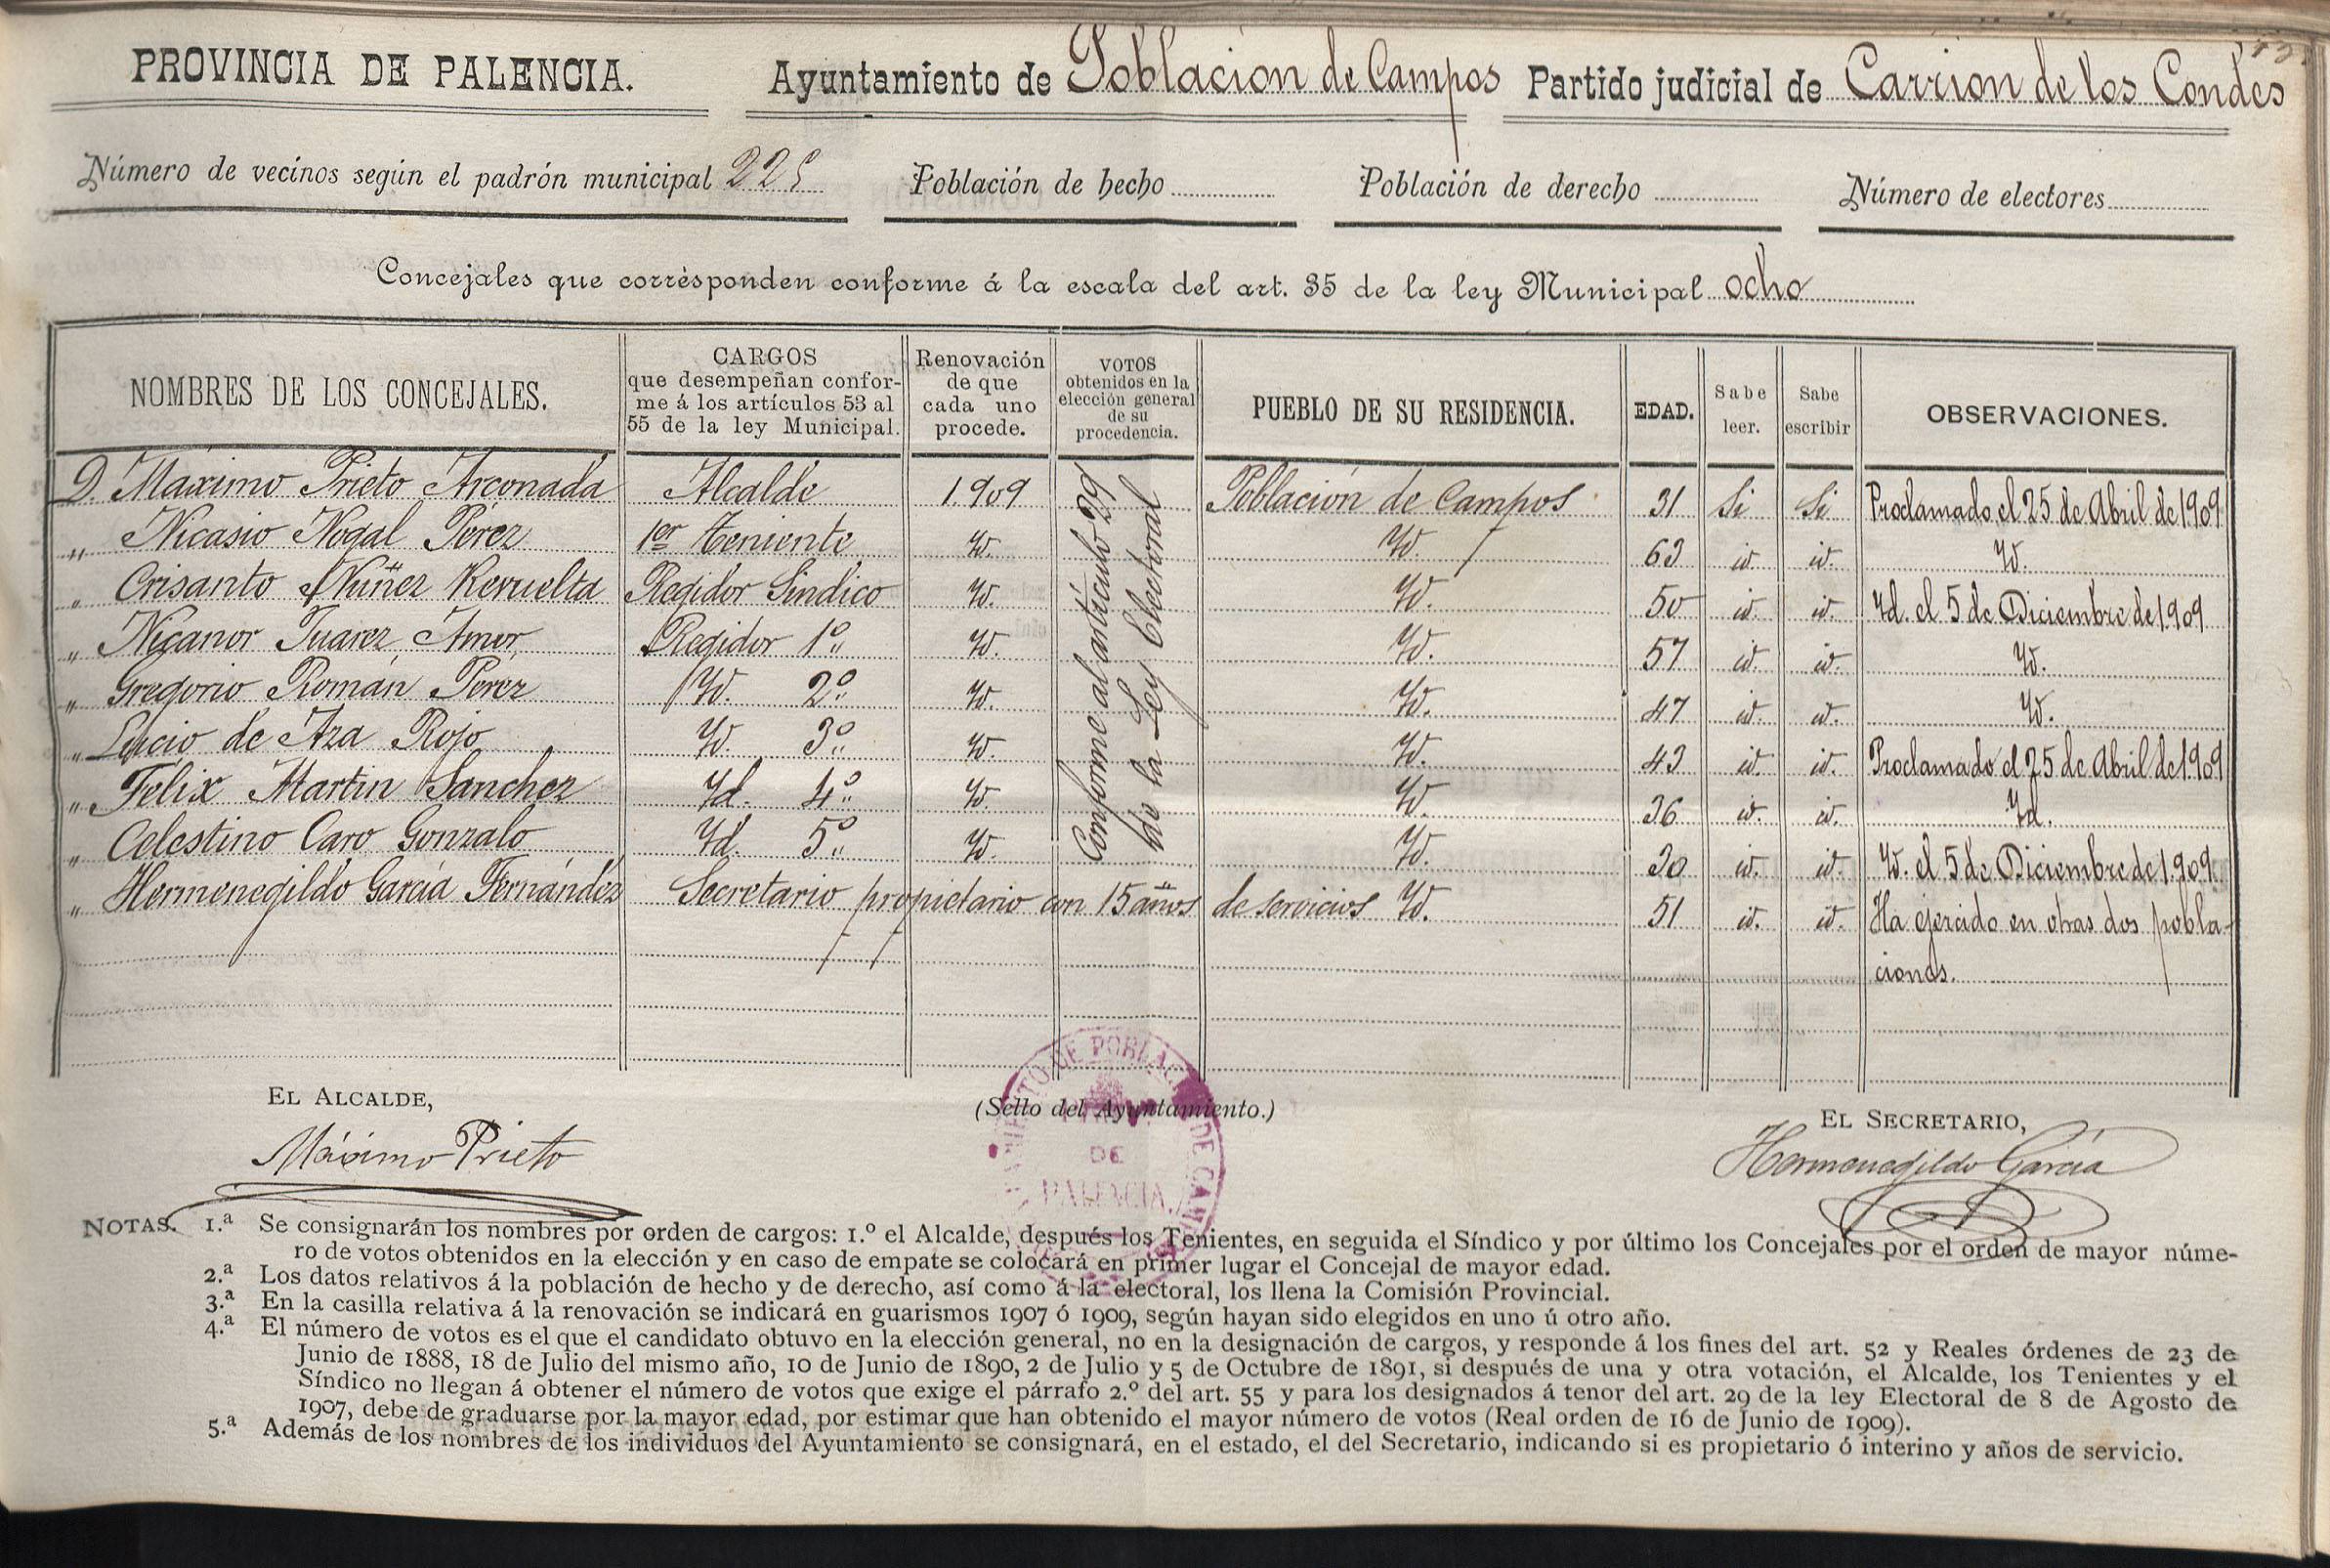 PROVINCIA DE PALENCIA. Ayuntamiento de Poblacion de Campos Partido judicial de Carrion de los Condes
Número de vecinos según el padrón municipal 225 Población de hecho Población de derecho Número de electores
Concejales que corresponden conforme á la escala del art. 35 de la ley Municipal ocho
NOMBRES DE LOS CONCEJALES.
CARGOS
que desempeñan confor-
me á los artículos 53 al
55 de la ley Municipal.
Renovación
de que
cada uno
procede.
VOTOS
obtenidos en la
elección general
de su
procedencia.
PUEBLO DE SU RESIDENCIA.
EDAD.
Sabe
leer.
Sabe
escribir
OBSERVACIONES.
D. Máximo Prieto Arconada Alcalde 1909 Población de Campos 31 Si Si Proclamado el 25 de Abril de 1909
„ Nicasio Nogal Pérez 1er Teniente Id. Id. 63 id. id. Id.
„ Crisanto Núñez Revuelta Regidor Sindico Id. Id. 50 id. id. Id. el 5 de Diciembre de 1909
„ Nicanor Juarez Amor Regidor 1º Id. Id. 57 id. id. Id.
„ Gregorio Román Pérez Id. 2º Id. Id. 47 id. id. Id.
„ Lucio de Aza Rojo Id. 3º Id. Id. 43 id. id. Proclamado el 25 de Abril de 1909
„ Félix Martin Sanchez Id. 4º Id. Id. 36 id. id. Id.
„ Celestino Caro Gonzalo Id 5º Id. Id. 30 id. id. Id. el 5 de Diciembre de 1909
„ Hermenegildo García Fernández Secretario propietario con 15 años de servicios Id. 51 id. id. Ha ejercido en otras dos pobla-
ciones.
Conforme al artículo 29
de la Ley Electoral
EL ALCALDE,
Máximo Prieto
(Sello del Ayuntamiento.)
DE POBLAC DE CAM
DE
PALENCIA
EL SECRETARIO,
Hermenegildo García
NOTAS. 1.ª Se consignarán los nombres por orden de cargos: 1.º el Alcalde, después los Tenientes, en seguida el Síndico y por último los Concejales por el orden de mayor núme-
ro de votos obtenidos en la elección y en caso de empate se colocará en primer lugar el Concejal de mayor edad.
2.ª Los datos relativos á la población de hecho y de derecho, así como á la electoral, los llena la Comisión Provincial.
3.ª En la casilla relativa á la renovación se indicará en guarismos 1907 ó 1909, según hayan sido elegidos en uno ú otro año.
4.ª El número de votos es el que el candidato obtuvo en la elección general, no en la designación de cargos, y responde á los fines del art. 52 y Reales órdenes de 23 de
Junio de 1888, 18 de Julio del mismo año, 10 de Junio de 1890, 2 de Julio y 5 de Octubre de 1891, si después de una y otra votación, el Alcalde, los Tenientes y el
Síndico no llegan á obtener el número de votos que exige el párrafo 2.º del art. 55 y para los designados á tenor del art. 29 de la ley Electoral de 8 de Agosto de
1907, debe de graduarse por la mayor edad, por estimar que han obtenido el mayor número de votos (Real orden de 16 de Junio de 1909).
5.ª Además de los nombres de los individuos del Ayuntamiento se consignará, en el estado, el del Secretario, indicando si es propietario ó interino y años de servicio.